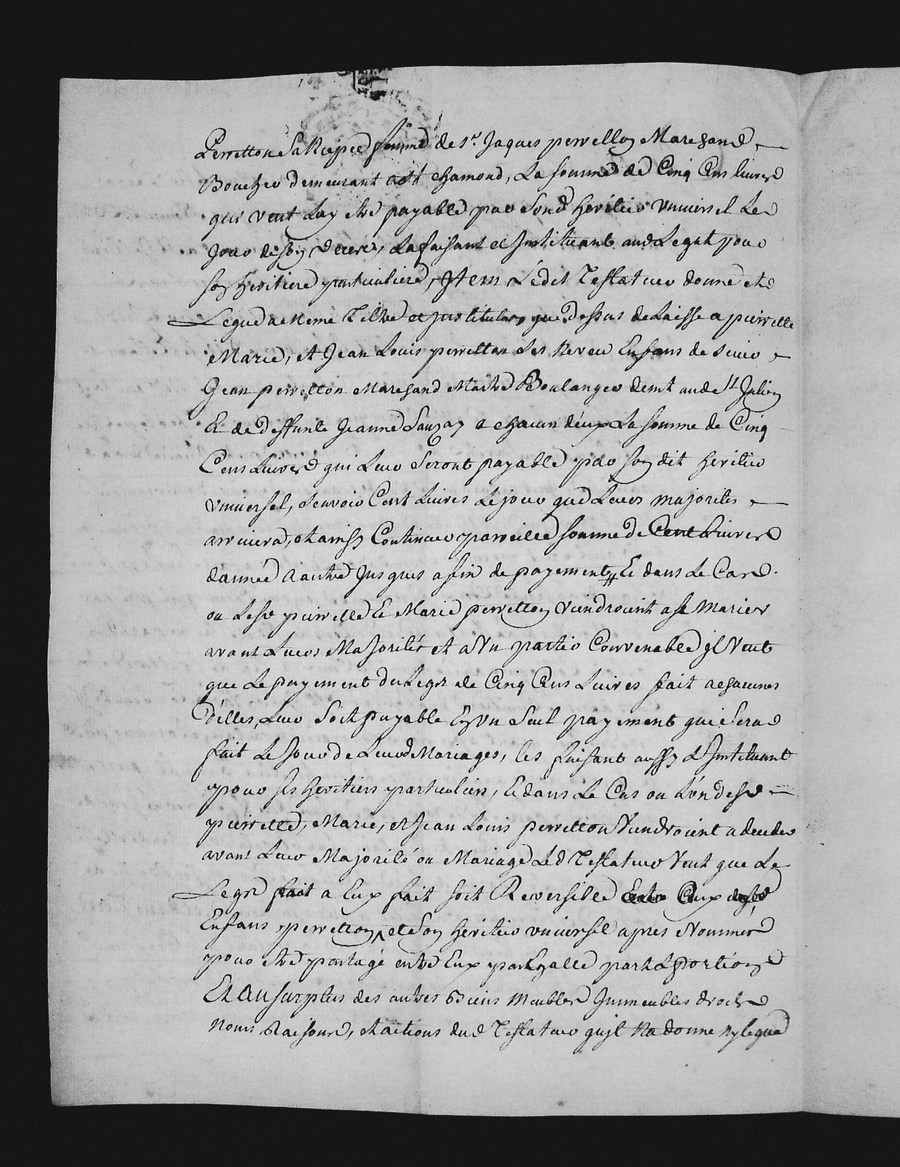 Perretton Sa Niepce femme de Sr. Jaques perretton Marchand
Boucher demeurant a St chamond, La Somme de Cinq Cens Livres
qu'il veut Luy etre payable par Sond heritier universel Le
Jour de Son deces, La faisant et Instituant aud Legat pour
Son heritiere particuliere, Item Ledit Testateur donne et
Legue a meme Titre et institution que Dessus delaisse a pierrette
Marie, et Jean Louis perretton Ses Neveu Enfans de Sieur
Jean perretton Marchand Maitre Boulanger demt aud St Julien
Et de deffunte Jeanne Sauzay a chacun d'eux La Somme de Cinq
Cens Livres qui Leur Seront payable par Son dit heritier
universel, Scavoir Cent Livres Le jour que Leurs majorités
arrivera, et ainsy Continuer pareille Somme de Cent Livres
d'année a autre Jusques a fin de payement, Et dans Le Cas
ou Lesd pierrette Et Marie perretton Viendroint a Se Marier
avant Leurs Majorités et a Un partis Convenable il Veut
que Le payement du Legs de Cinq Cens Livres fait a chacunes
d'elles, Leur Soit payable En Un Seul payement qui Sera
fait Le Jour de Leurs Mariages, les faisant aussy et Instituant
pour Ses heritiers particuliers, Et dans Le Cas ou L'un desd
pierrette, Marie, et Jean Louis perretton Viendroient a deceder
avant Leur Majorité ou Mariage Led Testateur Veut que Le
Legs fait a Eux fait Soit Reversible Entre Ceux desd
Enfans perretton, et Son heritier universel apres Nommé
pour etre partagé entre Eux par Egalle part et portion
Et Au Surplus des autres Biens Meubles Immeubles droits
Noms Raisons, et actions dud Testateur qu'il N'a donné ny legué